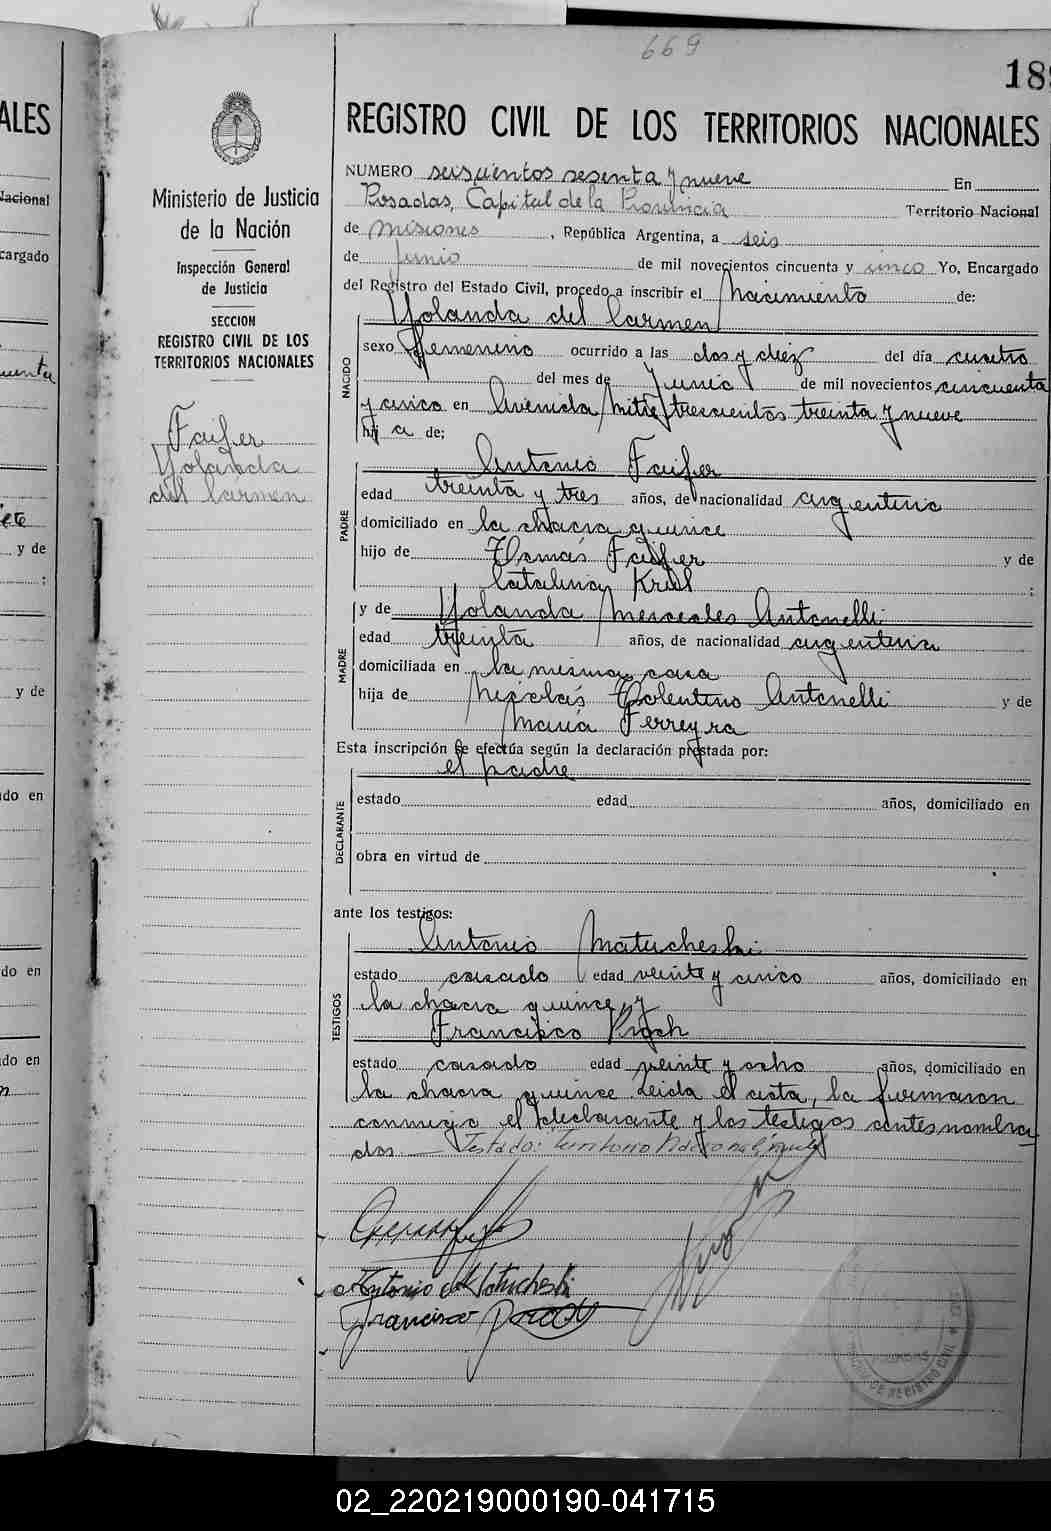 669
189
ALES
REGISTRO CIVIL DE LOS TERRITORIOS NACIONALES
Ministerio de Justicia
de la Nación
Inspección General
de Justicia
SECCION
REGISTRO CIVIL DE LOS
TERRITORIOS NACIONALES
Faifer
Yolanda
del Carmen
NUMERO seiscientos sesenta y nueve En
Posadas, Capital de la Provincia Territorio Nacional
de Misiones, República Argentina, a seis
de Junio de mil novecientos cincuenta y cinco Yo, Encargado
del Registro del Estado Civil, procedo a inscribir el Nacimiento de:
Yolanda del Carmen
NACIDO
sexo femenino ocurrido a las dos y diez del día cuatro
del mes de Junio de mil novecientos cincuenta
y cinco en Avenida Mitre trescientos treinta y nueve
hija de;
Antonio Faifer
PADRE
edad treinta y tres años, de nacionalidad argentina
domiciliado en la chacra quince
hijo de Tomás Faifer y de
Catalina Krul;
y de Yolanda Mercedes Antonelli
MADRE
edad treinta años, de nacionalidad argentina
domiciliada en la misma casa
hija de Nicolás Tolentino Antonelli y de
María Ferreyra
Esta inscripción se efectúa según la declaración prestada por:
el padre
DECLARANTE
estado edad años, domiciliado en
obra en virtud de
ante los testigos:
Antonio Matucheski
TESTIGOS
estado casado edad veinte y cinco años, domiciliado en
la chacra quince y
Francisco
estado casado edad veinte y ocho años, domiciliado en
la chacra quince Leida el acta, la firmaron
conmigo el declarante y los testigos antes nombra
dos. — Testado: Territorio Nacional,
Antonio Matucheski
Francisco
Nacional
cargado
y de
:
y de
do en
do en
do en
02_220219000190-041715